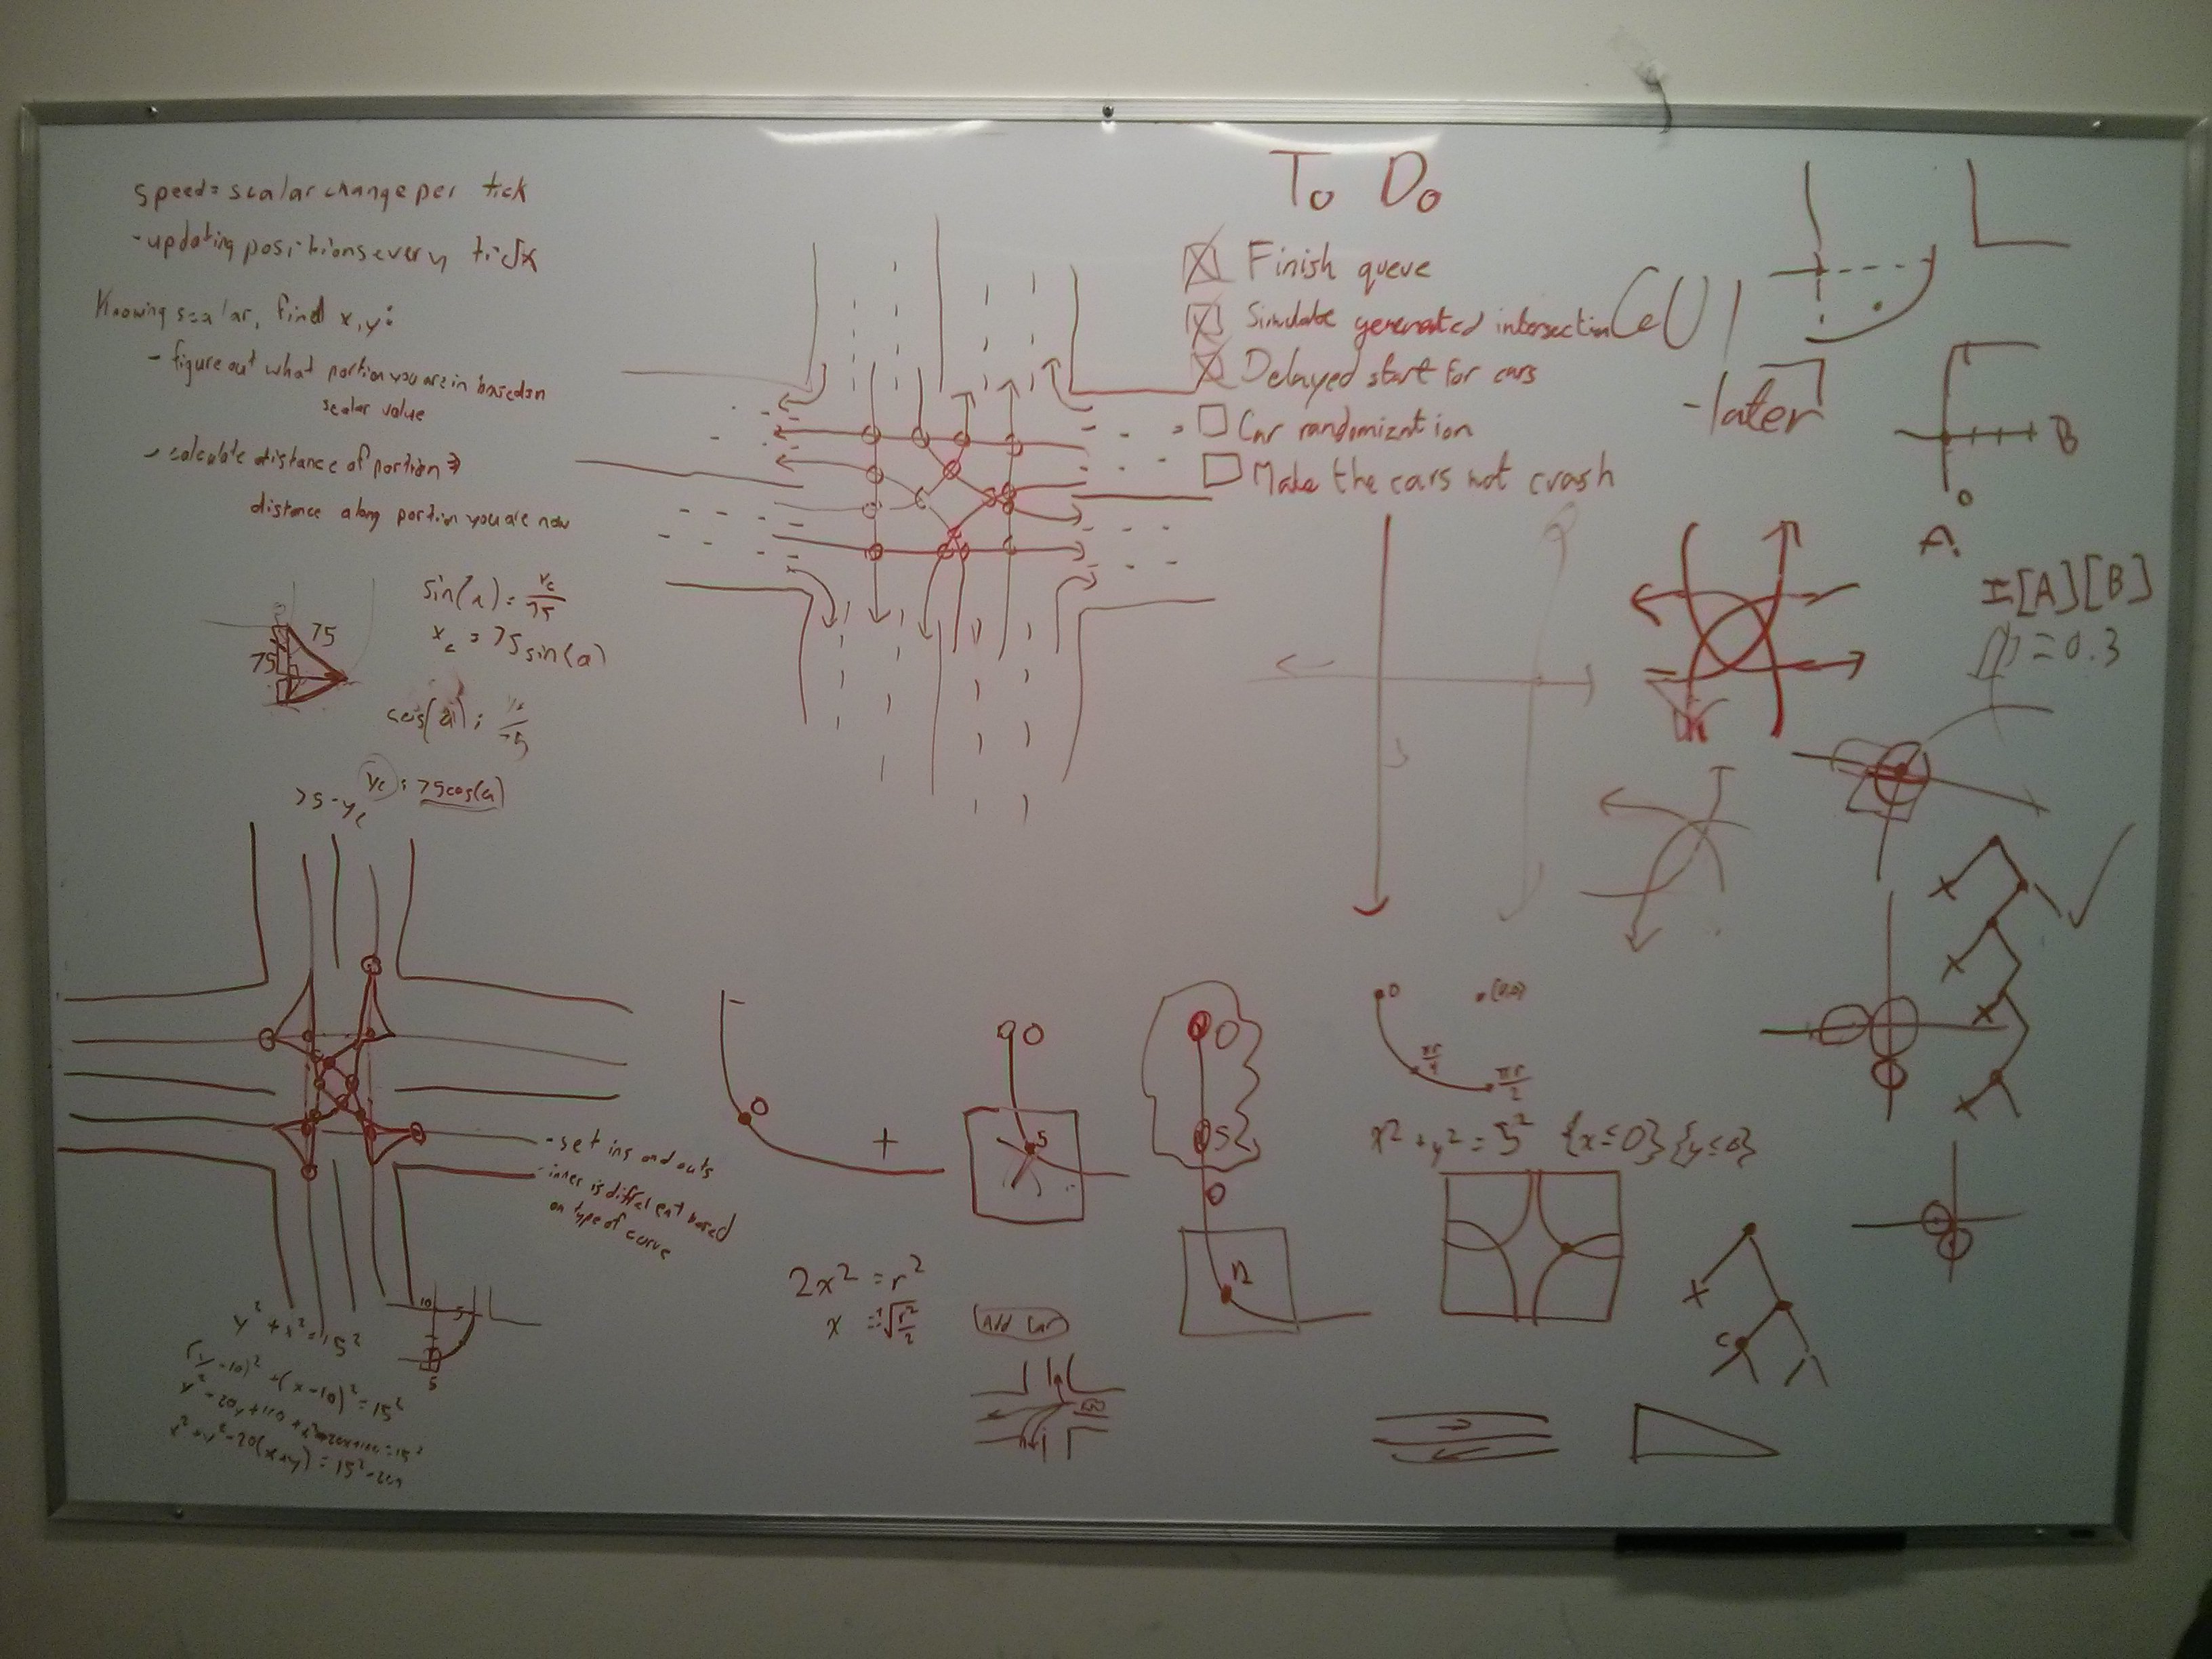 speed= scalar change per tick
- updating positions every tick
Knowing scalar, find x,y:
- figure out what portion you are in based on
scalar value
- calculate distance of portion →
distance along portion you are now
75
75
sin(a) =
x_c = 75 sin(a)
cos(a) =
75-y_c
y_c = 75cos(a)
To Do
Finish queue
Simulate generated intersection
Delayed start for cars
Car randomization
Make the cars not crash
-later
B
A
I[A][B]
= 0.3
- set ins and outs
- inner is different based
on type of curve
y² + x² = 15²
(y-10)² + (x-10)² = 15²
10
5
5
0
+
0
5
0
5
0
12
2x² = r²
x = ±√(r²/2)
Add Car
0
(0,0)
πr/4
πr/2
x² + y² = 5² {x≤0} {y≤0}